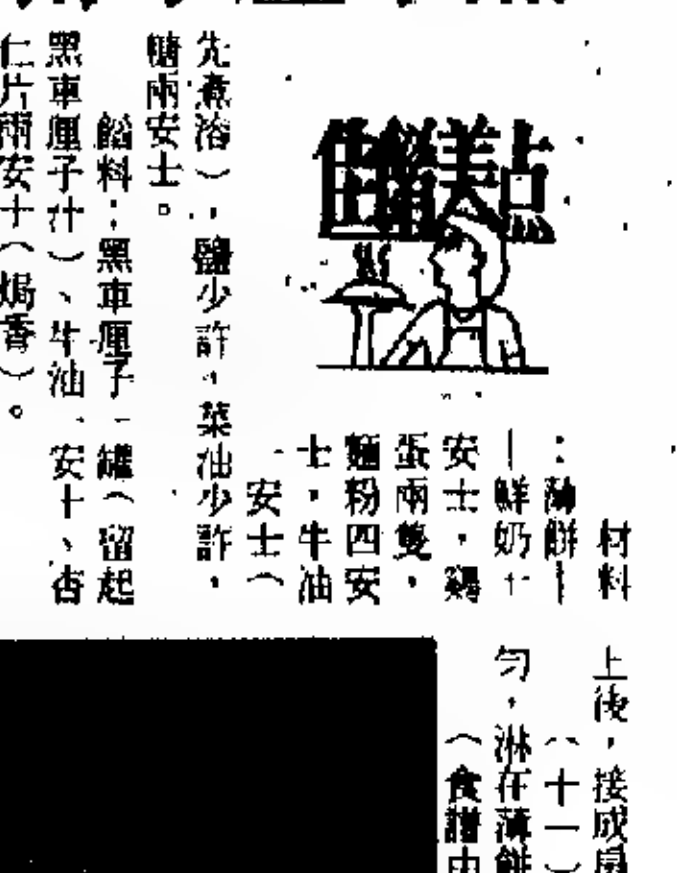 佳餚美点
材料
：薄餅｜
｜鮮奶十
安士，鷄
蛋兩隻，
麵粉四安
士，牛油
一安士（
先煮溶），鹽少許，菜油少許，
糖兩安士。
餡料：黑車厘子一罐（留起
黑車厘子汁）、牛油一安士、杏
仁片兩安士（焗香）。
上後，接成
（十一）
勻，淋在薄餅
（食譜由